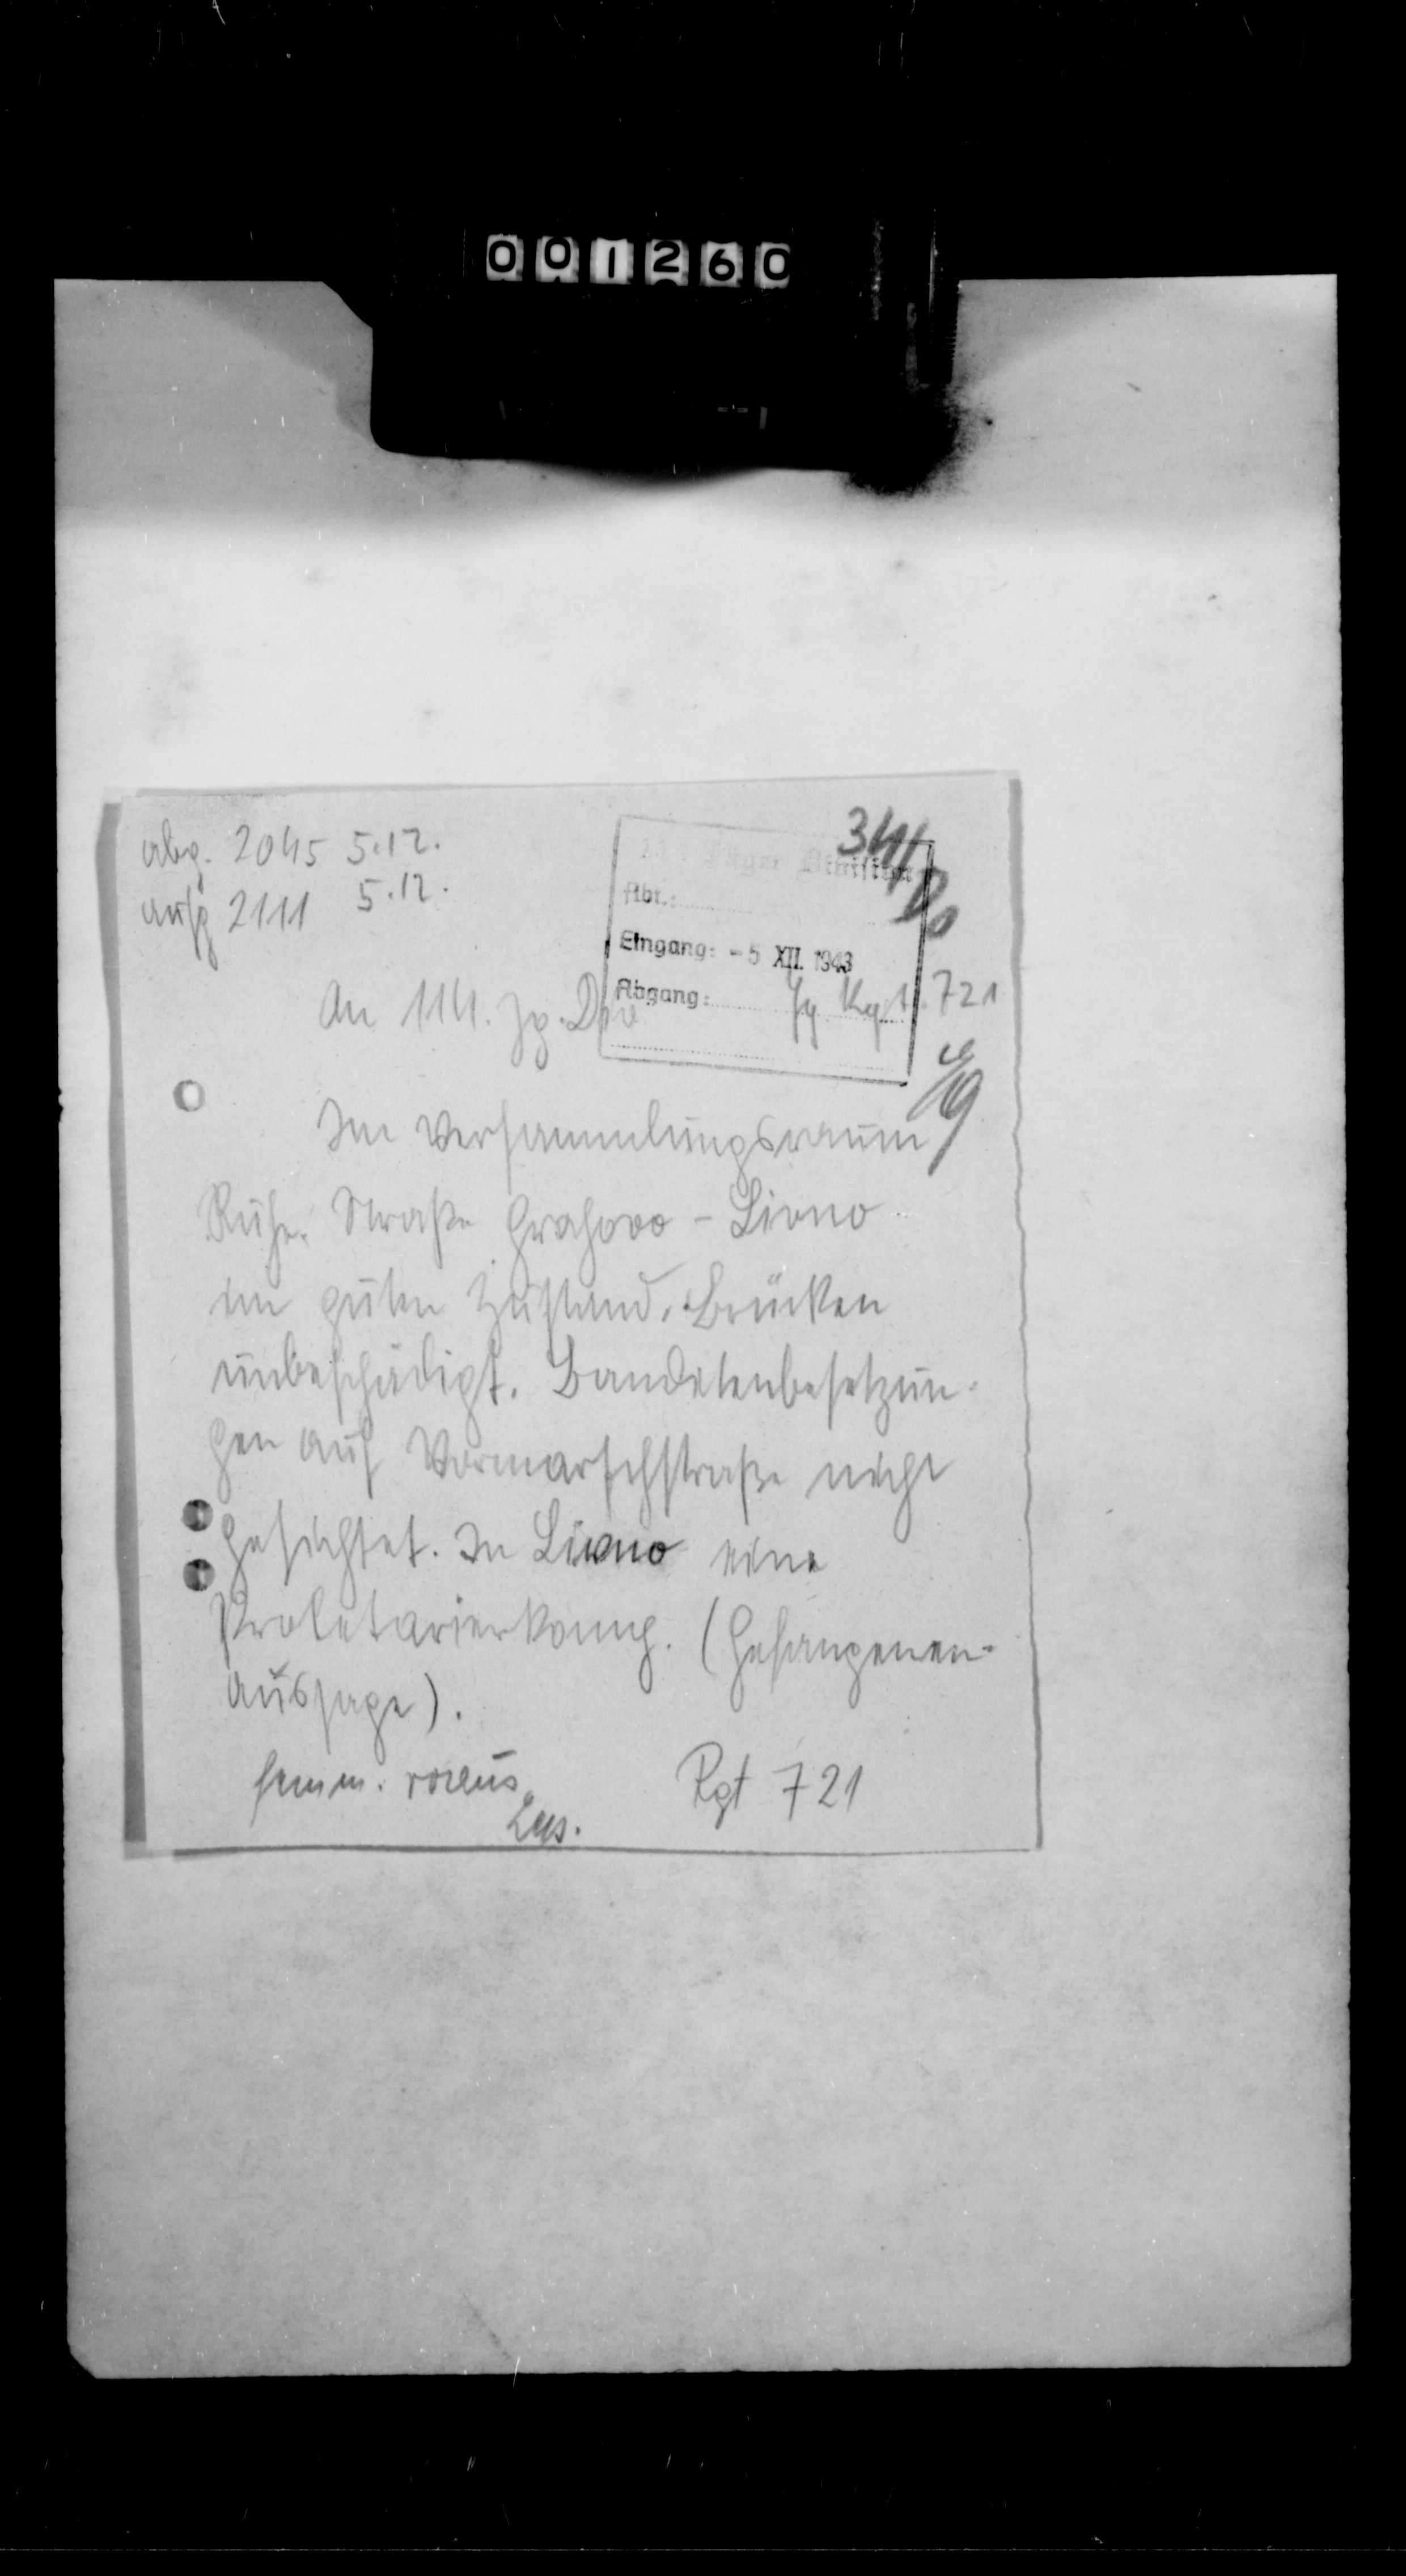 001260
abg. 2045 5.12.
aufg 2111 5.12.
341
Jäger Division
Abt.:
Eingang: -5 XII. 1943
Abgang:
An 114. Jg. Div
Jg Rgt. 721
Im Versammlungsraum
Ruhe. Straße Grahovo - Livno
im guten Zustand. Brücken
unbeschädigt. Banditenbesetzun-
gen auf Vormarschstraße nicht
gesichtet. In Livno eine
Proletarierkomp. (Gefangenen-
aussage).
Rgt 721